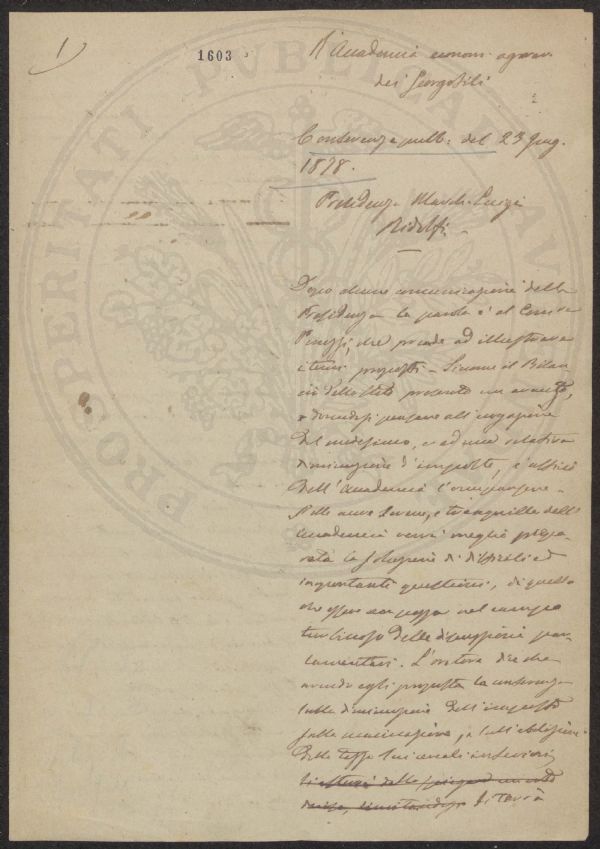 1
1603
R. Accademia econom. agraria
dei Georgofili
Conferenza pubb. del 23 Giug.
1878.
Presidenza March. Luigi
Ridolfi
Dopo alcune comunicazioni della
Presidenza la parola è al Comm.
Peruzzi, che prende ad illustrare
i temi proposti. Siccome il Bilan
cio dello Stato presenta un avanzo,
e dovendosi pensare all'erogazione
del medesimo, e ad una relativa
diminuzione d'imposte, è ufficio
dell'Accademia l'occuparsene.
Nelle aure serene, e tranquille dell'
Accademia verrà meglio prepa
rata la soluzione di difficili ed
importanti questioni, di quello
che essere non possa nel campo
tumultuoso delle discussioni par
lamentari. L'oratore dice che
avendo egli proposta la conferenza
sulla diminuzione dell'imposta
sulla macinazione, e sull'abolizione
della tassa sui cereali inferiori
si terrà